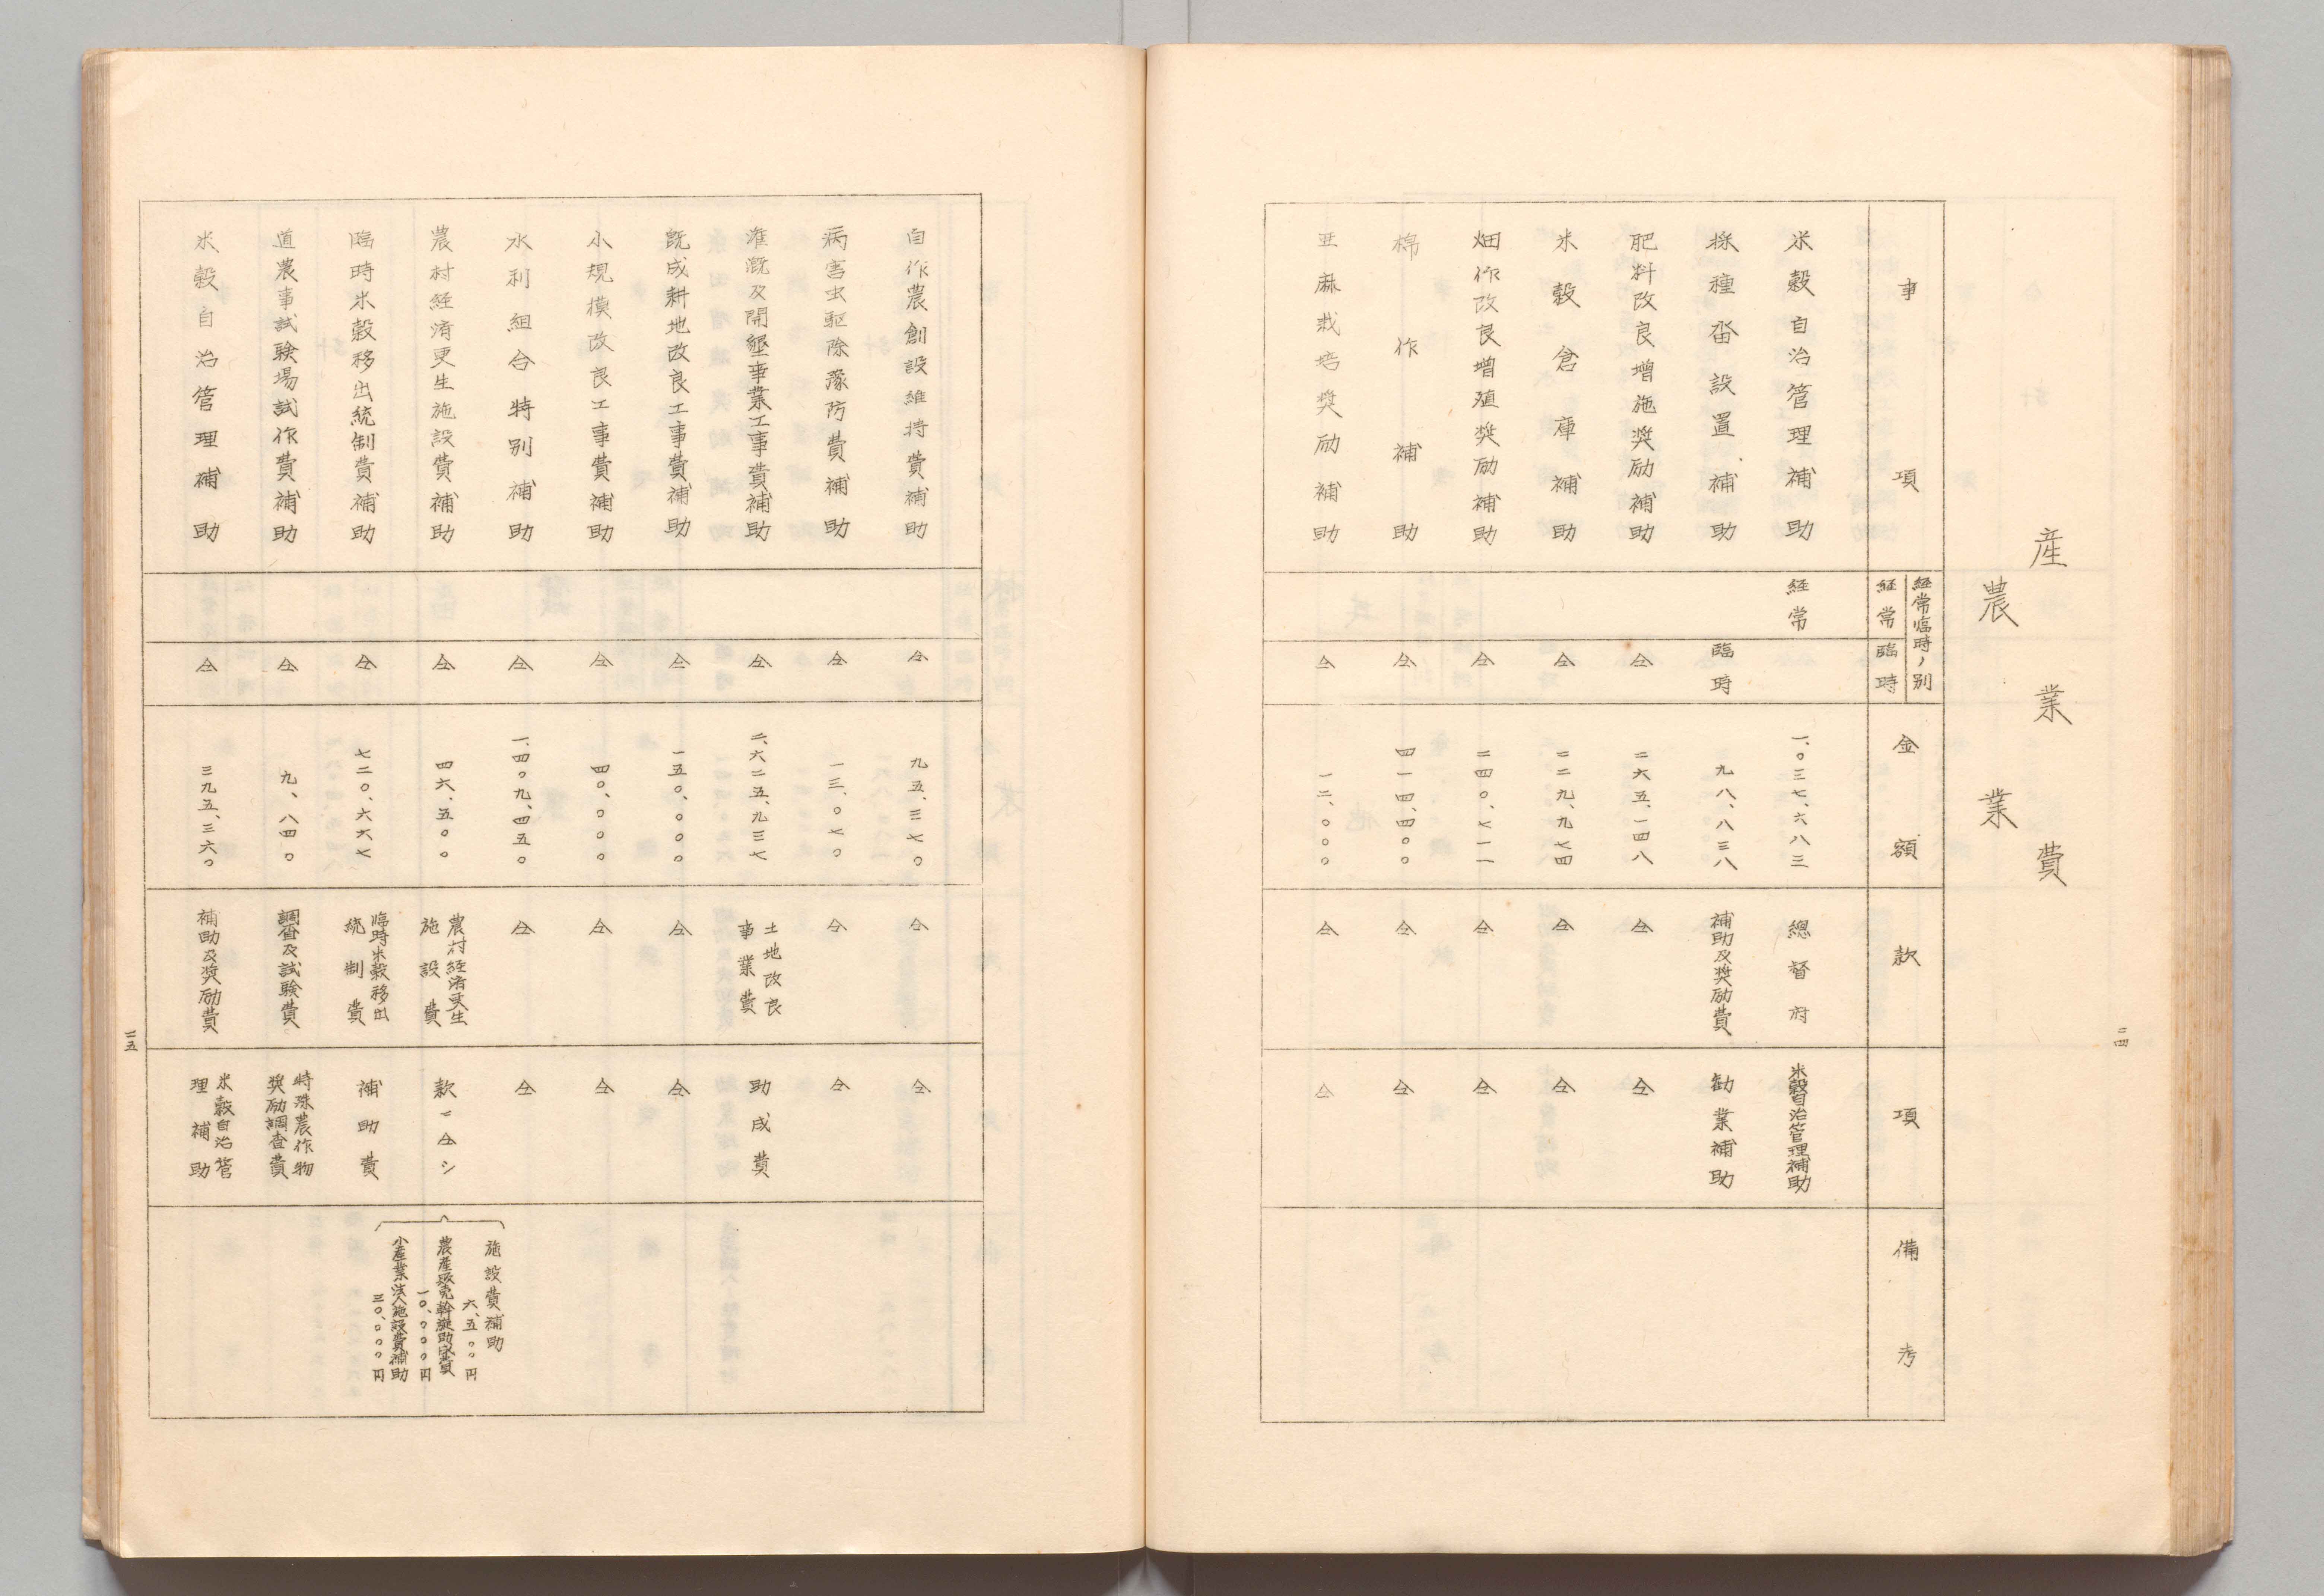 産業費
農業
二四
事項
経常臨時ノ別
経常
臨時
金額
款
項
備考
米穀自治管理補助
経常
一、〇三七、六八三
總督府
米穀自治管理補助
採種畓設置補助
臨時
九八、八三八
補助及奨励費
勧業補助
肥料改良增施奨励補助
仝
二六五、一四八
仝
仝
米穀倉庫補助
仝
二二九、九七四
仝
仝
畑作改良增殖奨励補助
仝
二四〇、七一一
仝
仝
棉作補助
仝
四一四、四〇〇
仝
仝
亜麻栽培奨励補助
仝
一二、〇〇〇
仝
仝
自作農創設維持費補助
仝
九五、三七〇
仝
仝
病害虫駆除豫防費補助
仝
一三、〇七〇
仝
仝
潅漑及開墾事業工事費補助
仝
二、六二五、九三七
土地改良
事業費
助成費
既成耕地改良工事費補助
仝
一五〇、〇〇〇
仝
仝
小規模改良工事費補助
仝
四〇、〇〇〇
仝
仝
水利組合特別補助
仝
一、四〇九、四五〇
仝
仝
農村経済更生施設費補助
仝
四六、五〇〇
農村経済更生
施設費
款ニ仝シ
施設費補助
六、五〇〇円
農産販売斡旋助成費
一〇、〇〇〇円
小産業法人施設費補助
三〇、〇〇〇円
臨時米穀移出統制費補助
仝
七二〇、六六七
臨時米穀移出
統制費
補助費
道農事試験場試作費補助
仝
九、八四〇
調査及試験費
特殊農作物
奨励調査費
米穀自治管理補助
仝
三九五、三六〇
補助及奨励費
米穀自治管
理補助
二五